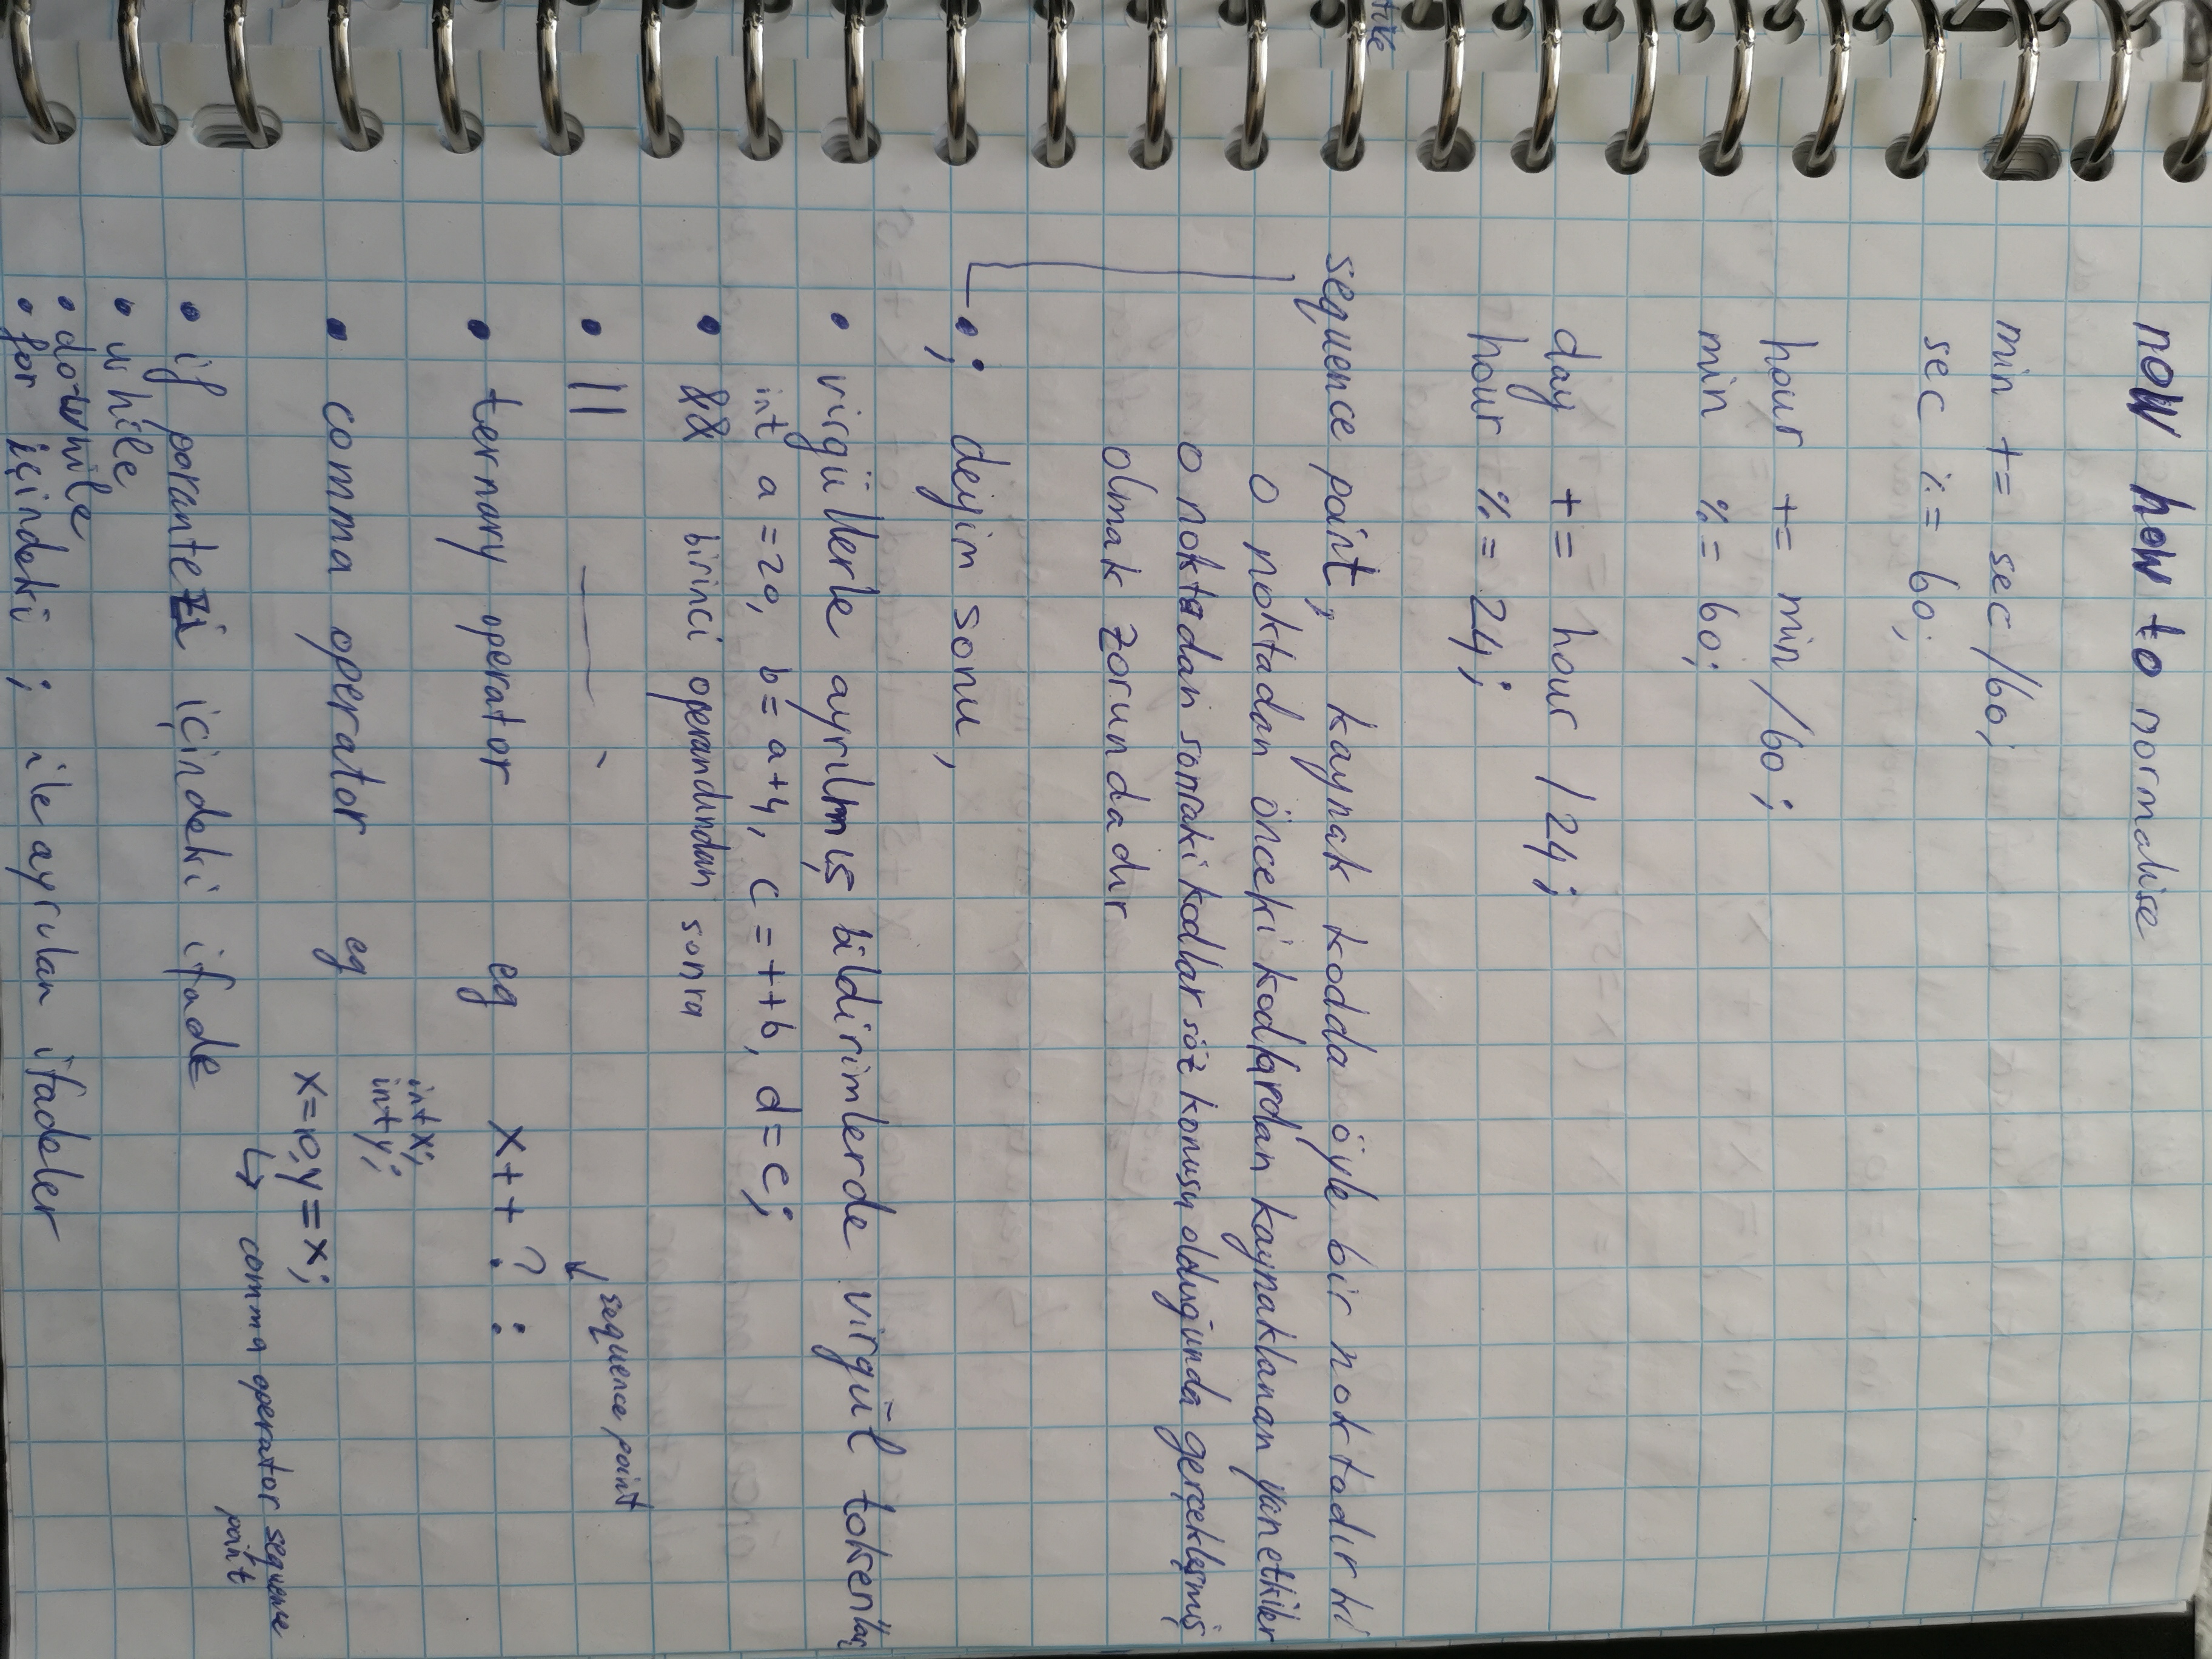 now how to normalise
min += sec /60;
sec %= 60;
hour += min /60;
min %= 60;
day += hour /24;
hour %= 24;
sequence point, kaynak kodda öyle bir noktadır ki
o noktadan önceki kodlardan kaynaklanan yan etkiler
o noktadan sonraki kodlar söz konusu olduğunda gerçekleşmiş
olmak zorundadır
• ; deyim sonu,
• virgüllerle ayrılmış bildirimlerde virgül token'ları
int a =20, b= a+4, c =++b, d=c;
• && birinci operandından sonra
• ||
sequence point
• ternary operator eg x++ ? :
int x;
int y;
• comma operator eg
x=10,y=x;
↳ comma operator sequence
point
• if parantezi içindeki ifade
• while
• do-while
• for içindeki ; ile ayrılan ifadeler